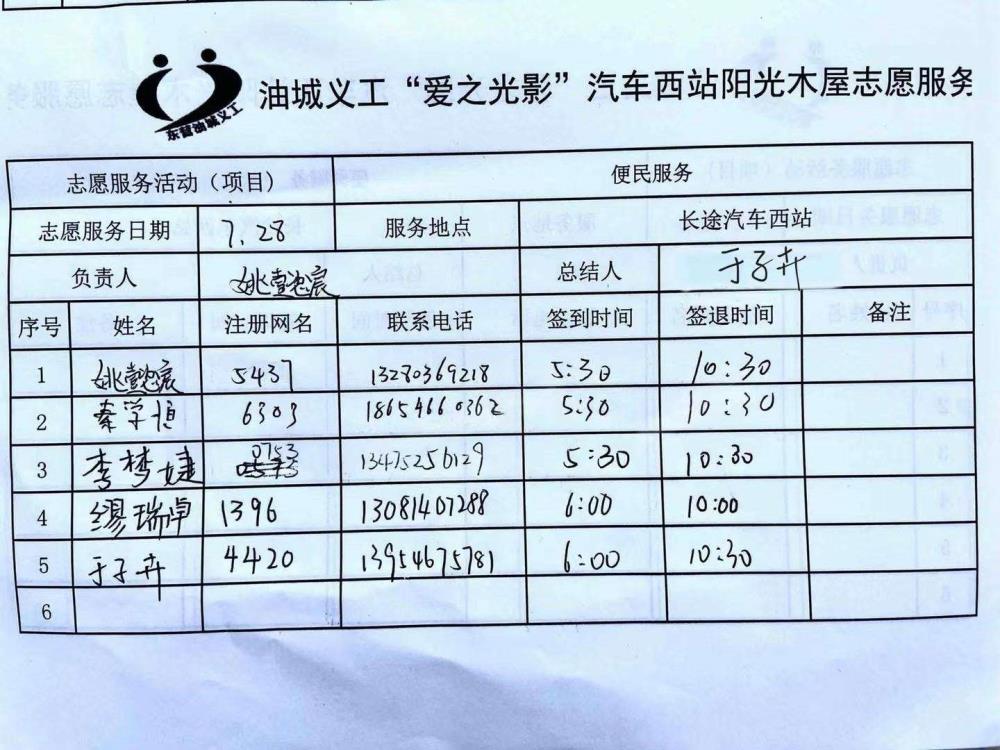 东营油城义工
油城义工“爱之光影”汽车西站阳光木屋志愿服务
志愿服务活动（项目） 便民服务
志愿服务日期 1.28 服务地点 长途汽车西站
负责人 姚懿宸 总结人 于子卉
序号 姓名 注册网名 联系电话 签到时间 签退时间 备注
1 姚懿宸 5437 13280369218 5:30 10:30
2 秦学恒 6303 18654660362 5:30 10:30
3 李梦婕 0753 13475256129 5:30 10:30
4 缪瑞卓 1396 13081407288 6:00 10:00
5 于子卉 4420 13954675781 6:00 10:30
6